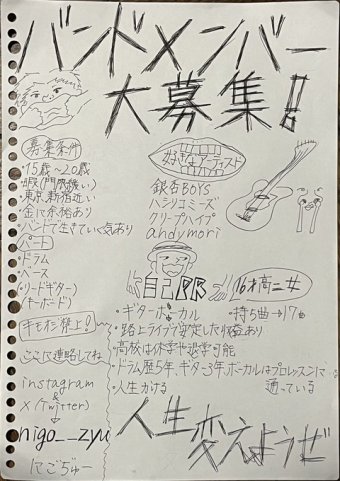 バンドメンバー
大募集!!
募集条件
・15歳〜20歳
・暇(門限緩い)
・東京,新宿近い
・金に余裕あり
・バンドで生きていく気あり
パート
・ドラム
・ベース
・(リードギター)
・(キーボード)
好きなアーティスト
銀杏BOYS
ハシリコミーズ
クリープハイプ
andymori
自己PR
16才高二女
・ギターボーカル
・持ち曲→17曲
・路上ライブで安定した収益あり
・高校は休学や退学可能
・ドラム歴5年、ギター3年、ボーカルはプロレッスンに
通っている
・人生かける
ここに連絡してね
instagram
&
X(Twitter)
nigo__zyu
にごぢゅー
人生
変えようぜ